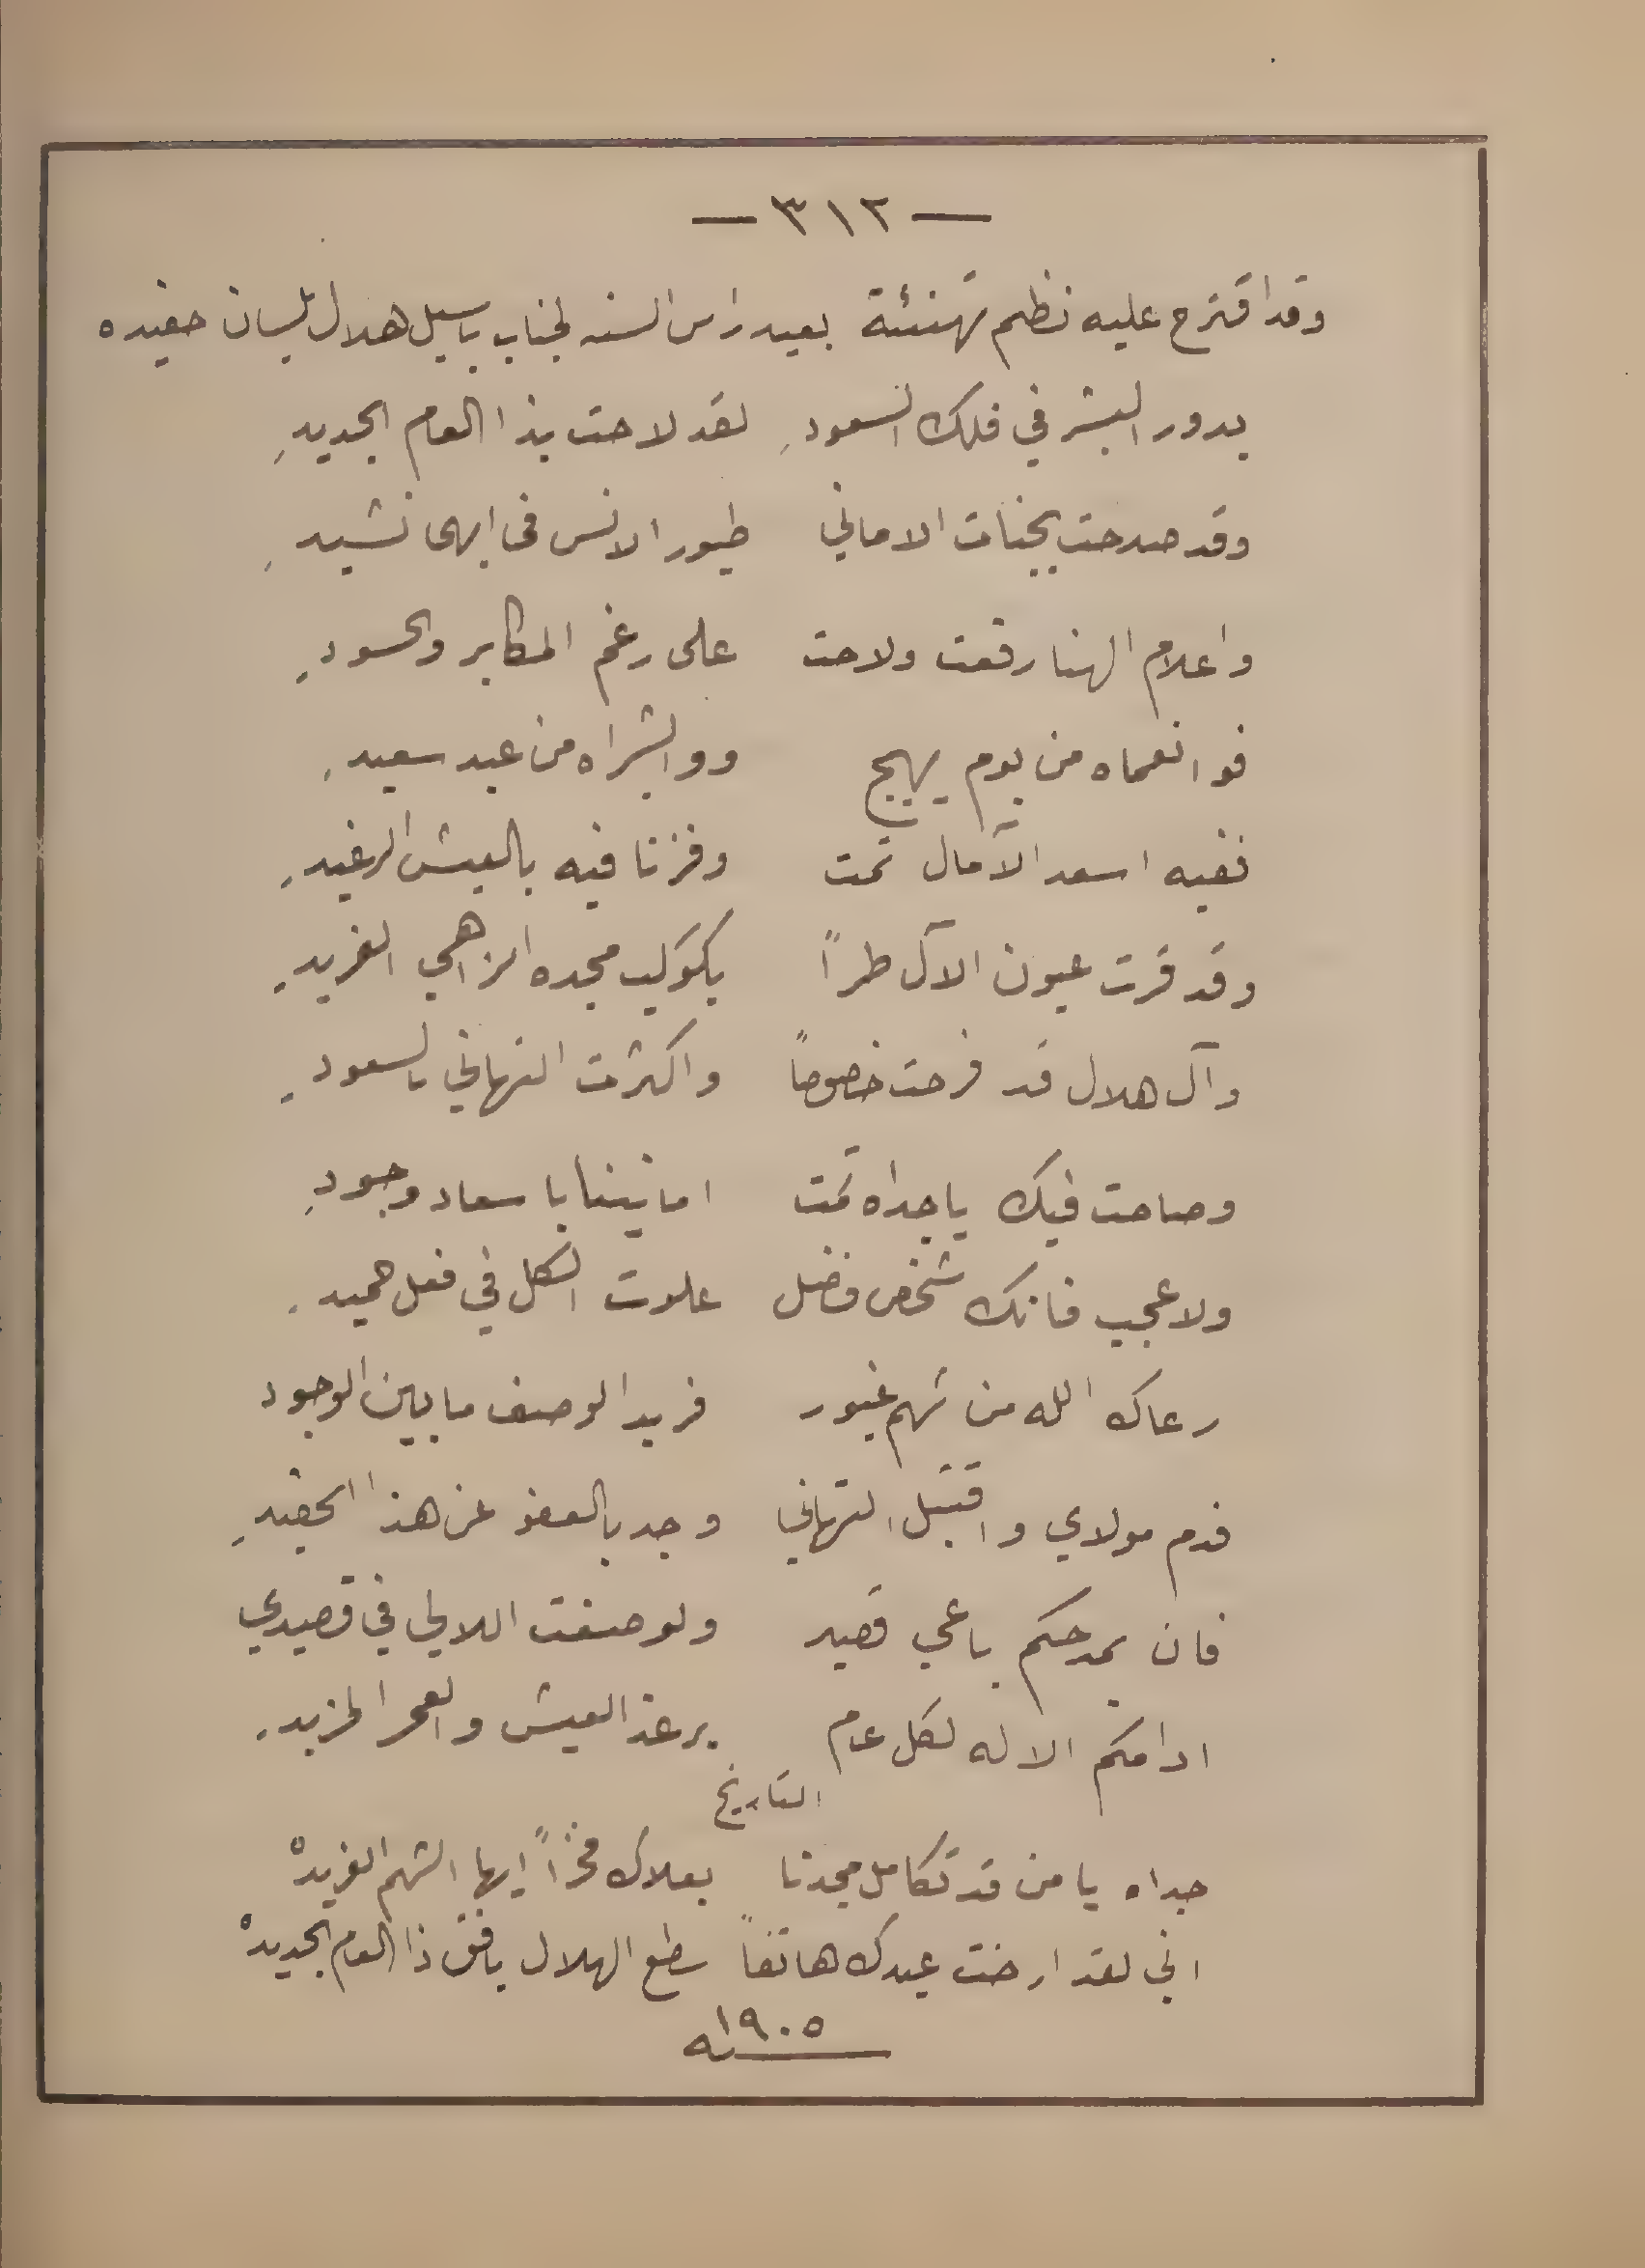 — ٣١٢ —
وقد اقترح عليه نظم تهنئة بعيد راس السنه لجناب باسيل هلال بلسان حفيده
بدور البشر في فلك السعودِ لقد لاحت بذا العام الجديدِ
وقد صدحت بجنات الاماني طيور الانس فى ابهى نشيدِ
واعلام الهنا رفعت ولاحت على رغم المكابر والحسودِ
فوا نعماه من يوم بهيج ووا بشراه من عيد سعيدِ
ففيه اسعد الآمال تمت وفزنا فيه بالعيش الرغيدِ
وقد قرت عيون الآل طراً بكوكب مجده الزاهي الفريدِ
وآل هلال قد فرحت خصوصاً واكثرت التهاني بالسعودِ
وصاحت فيك يا جداه تمت امانينا باسعاد وجودِ
ولا عجب فانك شخص فضل علوت الكل في فعل حميدِ
رعاك الله من شهم غيور فريد الوصف ما بين الوجود
فدم مولاي واقتبل التهاني وجد بالعفو عن هذا الحفيدِ
فان بمدحكم باعي قصير ولو صغت اللالي في قصيدي
ادامكم الاله لكل عام برغد العيش والعمر المزيدِ
التاريخ
جداه يا من قد تكامل مجدنا بعلاك فخراً ايها الشهم الفريدْ
اني لقد ارخت عيدك هاتفاً سطع الهلال بافق ذا العام الجديدْ
١٩٠٥ سنه